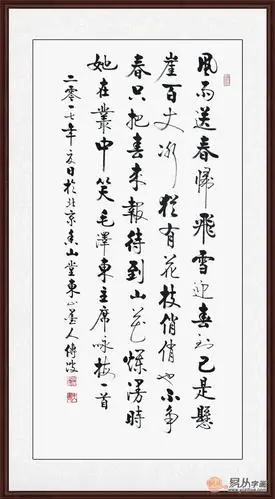 風雨送春歸飛雪迎春到已是懸
崖百丈冰犹有花枝俏俏也不争
春只把春来報待到山花爛漫時
她在叢中笑毛澤東主席咏梅一首
二零一七年夏日於北京香山堂東山墨人傅波
易从字画